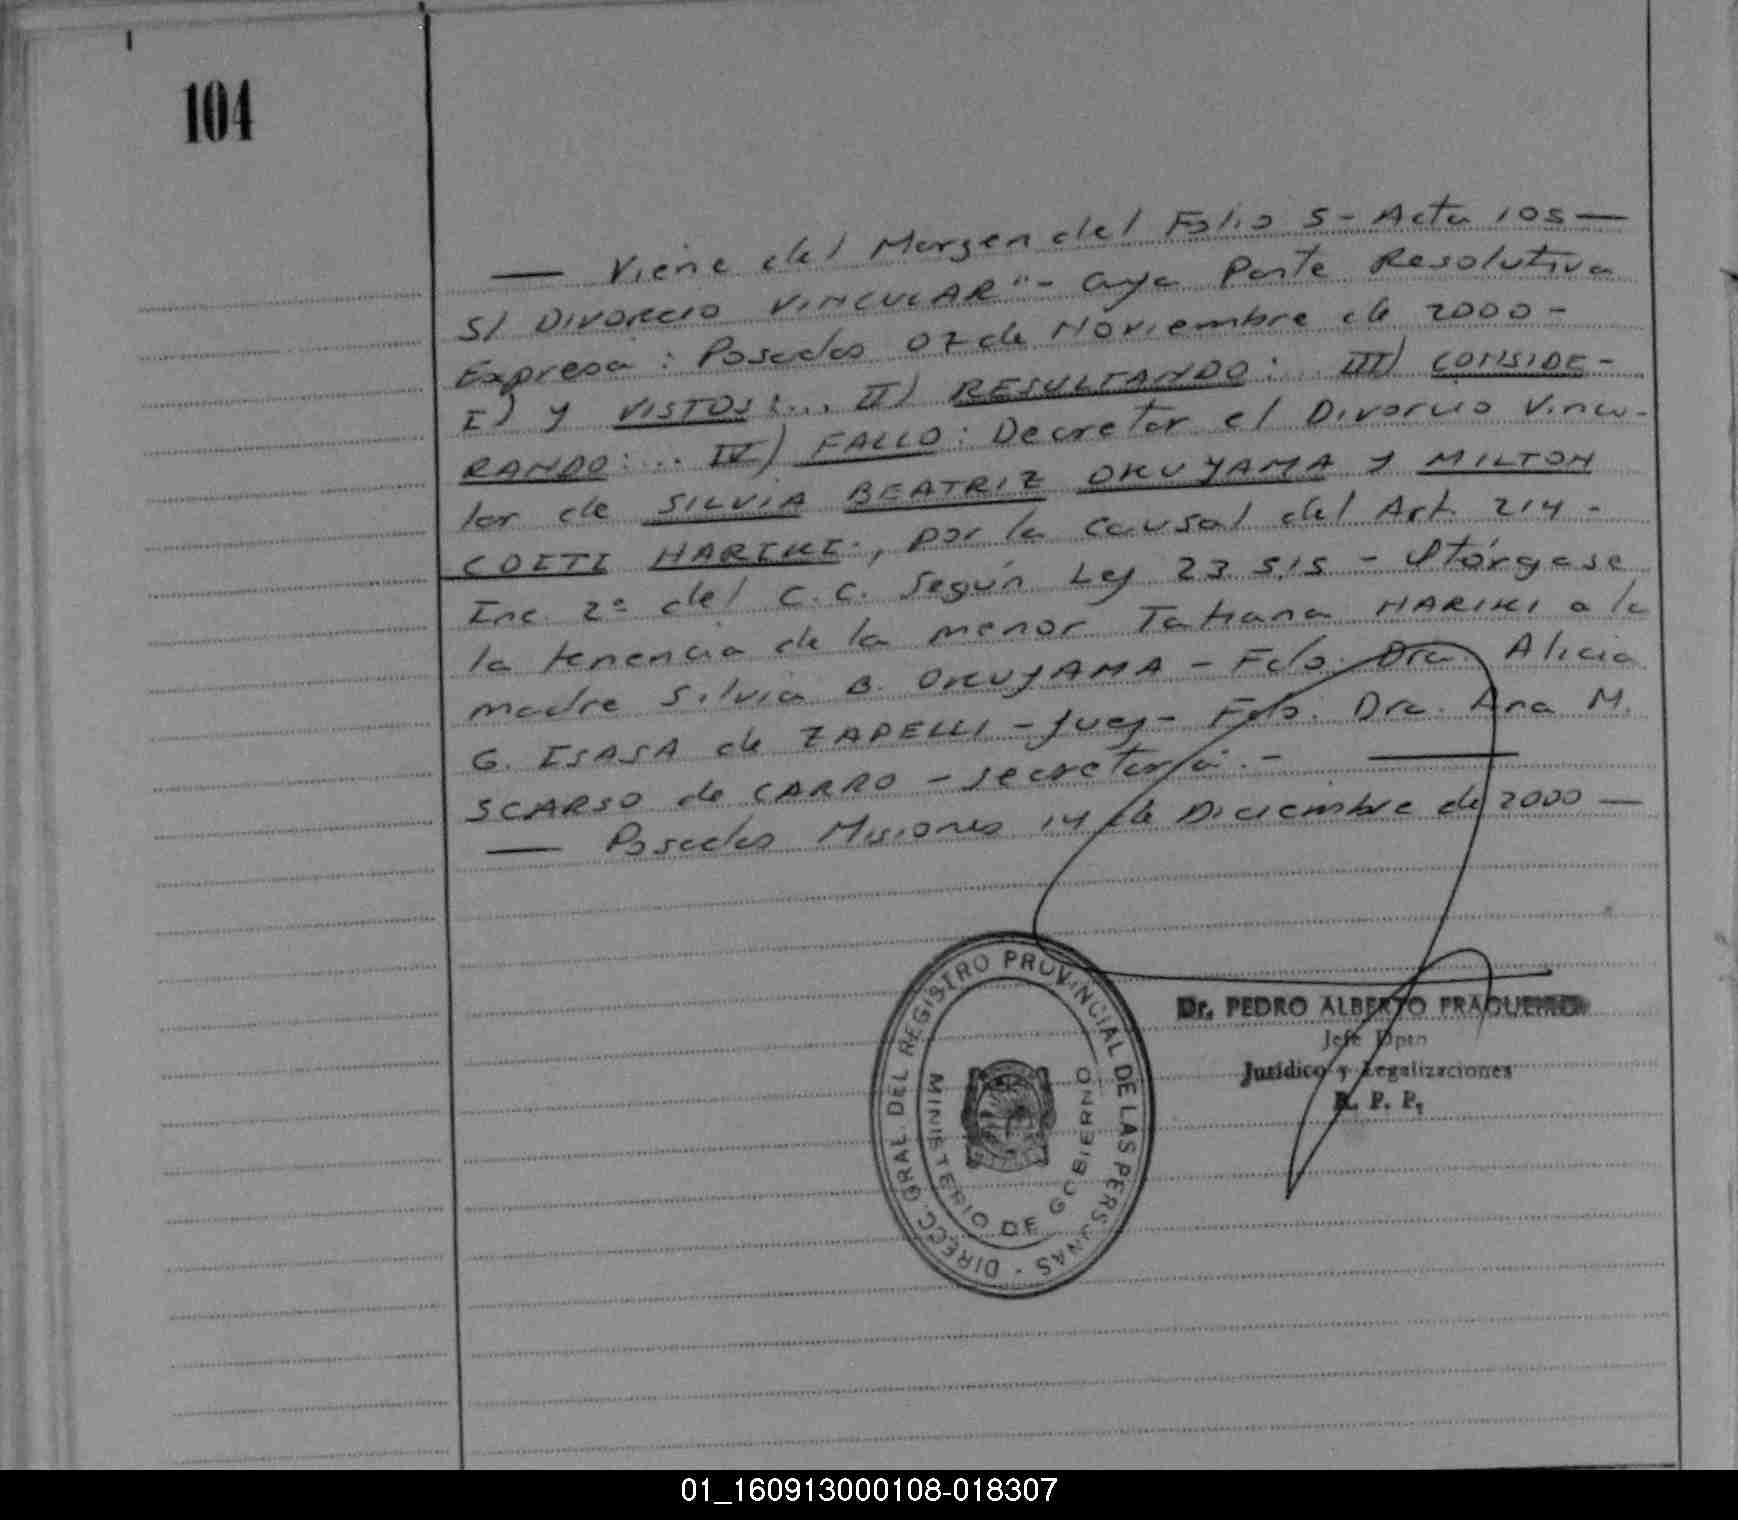 104
— Viene del Margen del Folio 5 - Acta 105 —
S/ DIVORCIO VINCULAR" - cuya Parte Resolutiva
Expresa: Posadas 07 de Noviembre de 2000 -
I) y VISTOS:... II) RESULTANDO:.. III) CONSIDE-
RANDO:... IV) FALLO: Decretar el Divorcio Vincu-
lar de SILVIA BEATRIZ OKUYAMA y MILTON
COITI HARIKI, por la causal del Art. 214 -
Inc. 2º del C.C. según Ley 23.515 - Otórgase
la tenencia de la menor Tatiana HARIKI a la
madre Silvia B. OKUYAMA - Fdo. Dra. Alicia
G. ISASA de ZAPELLI - Juez - Fdo. Dra. Ana M.
SCARSO de CARRO - secretaria. - —
— Posadas Misiones 14 de Diciembre de 2000 —
DIRECC. GRAL. DEL REGISTRO PROVINCIAL DE LAS PERSONAS -
MINISTERIO DE GOBIERNO
Dr. PEDRO ALBERTO FRAGUEIRO
Jefe Dpto
Jurídico y Legalizaciones
R. P. P.
01_160913000108-018307